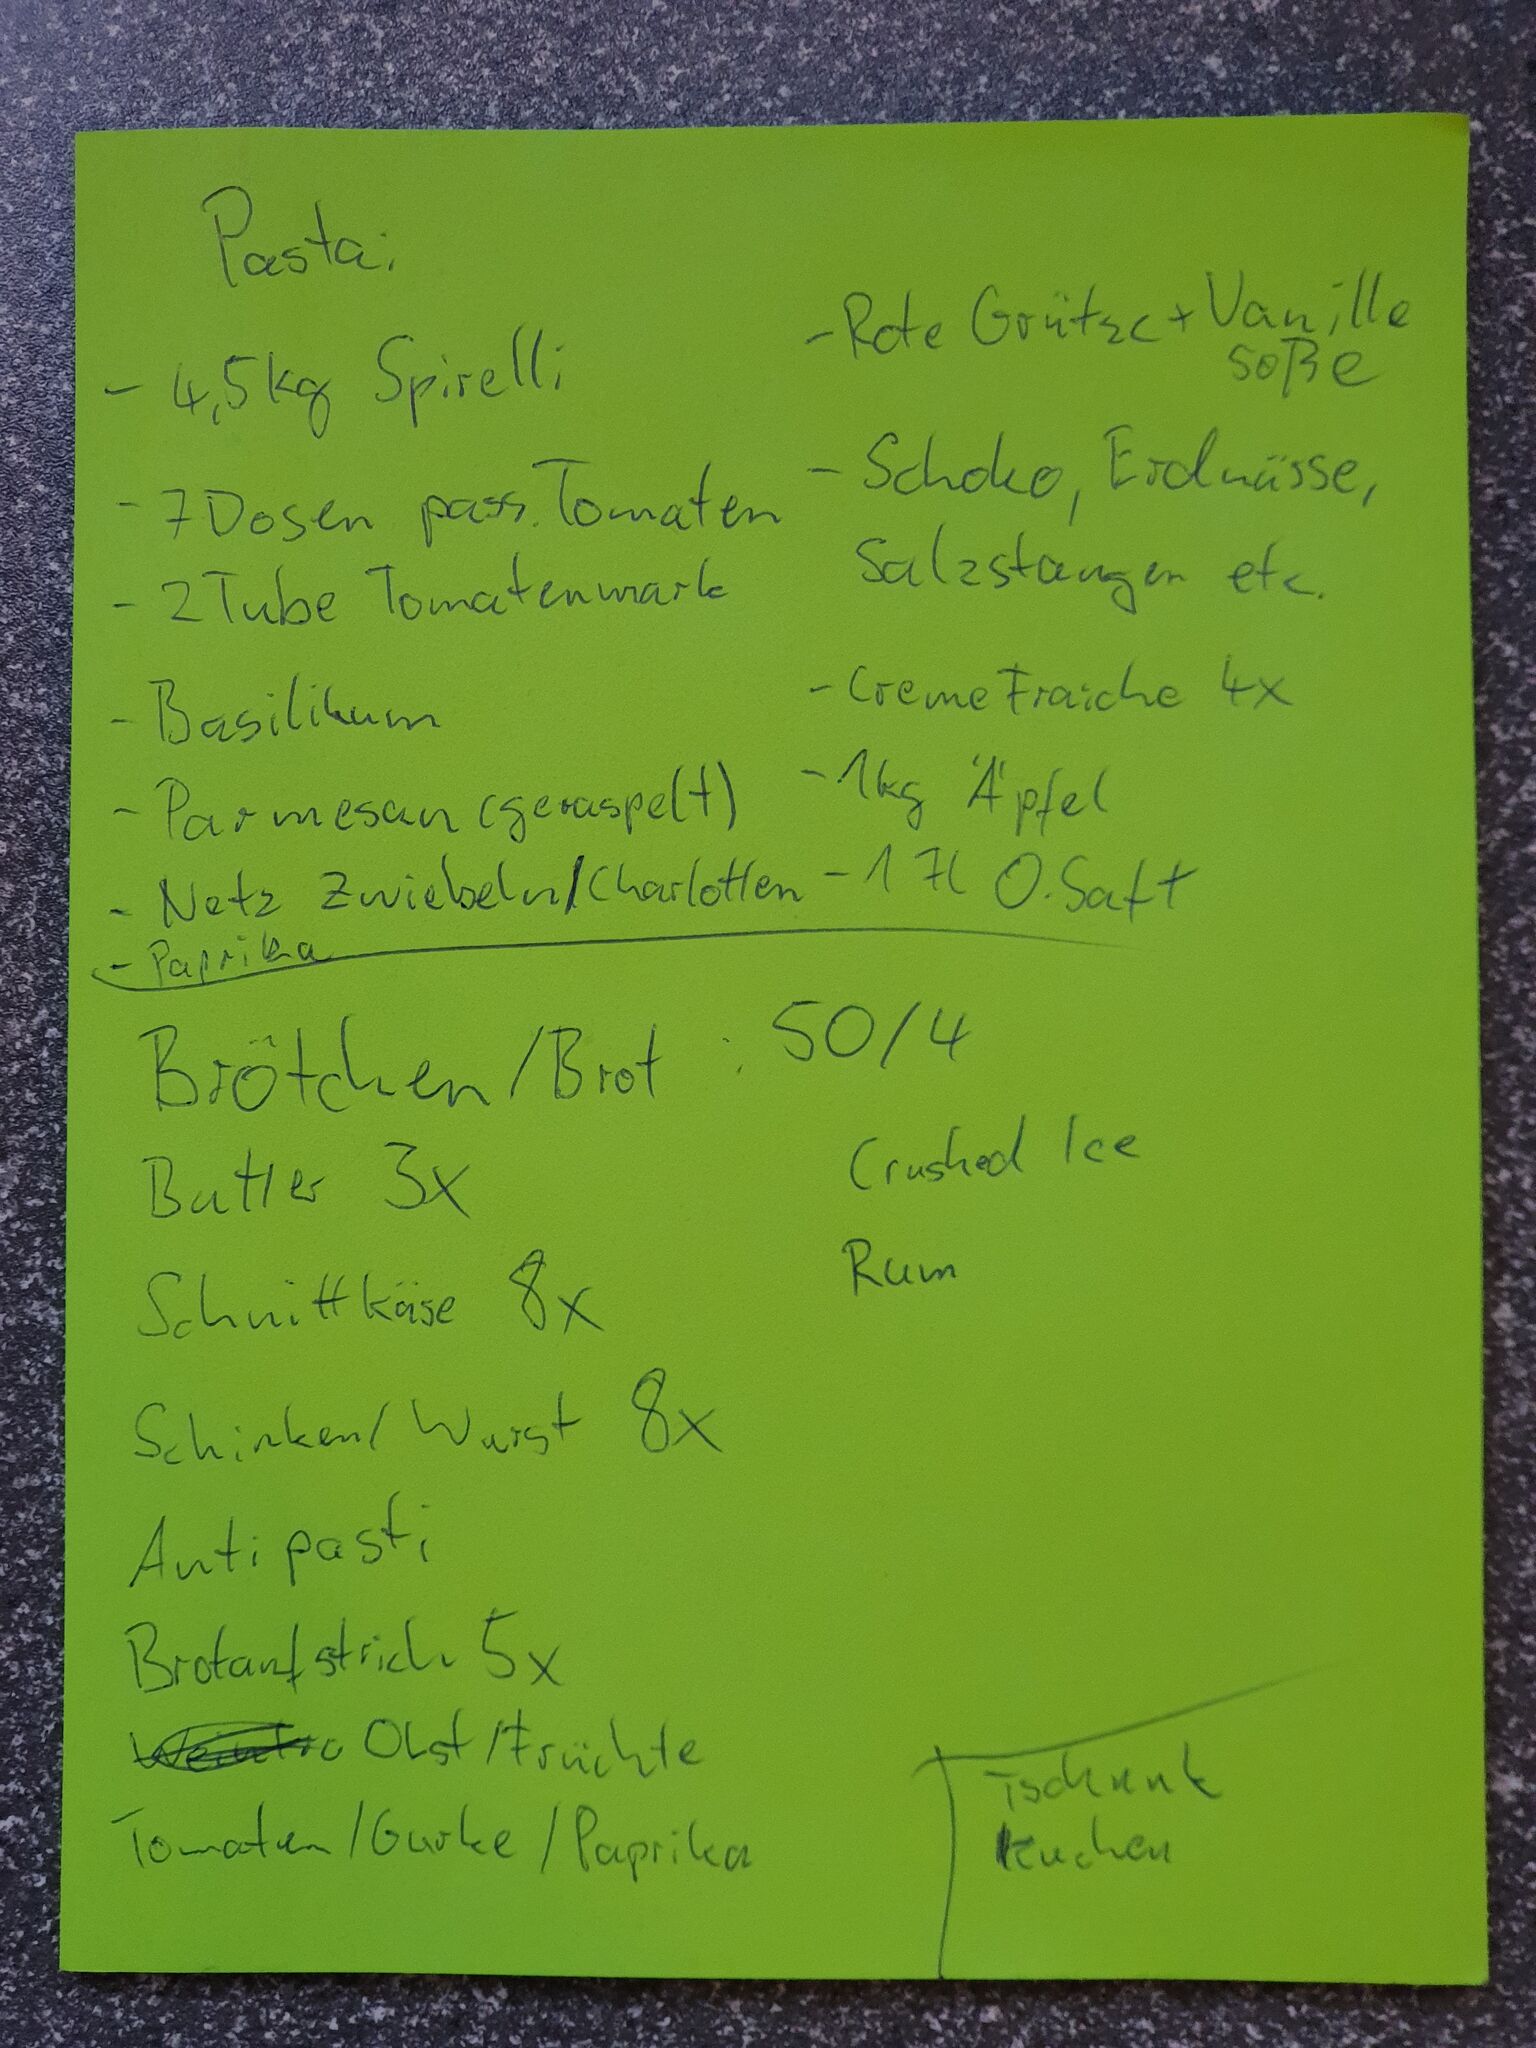 Pasta:
- 4,5kg Spirelli
- 7 Dosen pass. Tomaten
- 2 Tube Tomatenmark
- Basilikum
- Parmesan (geraspelt)
- Netz Zwiebeln/Charlotten
- Paprika
- Rote Grütze + Vanille
soße
- Schoko, Erdnüsse,
Salzstangen etc.
- Creme Fraiche 4x
- 1kg Äpfel
- 1 7l O.Saft
Brötchen/Brot : 50/4
Butter 3x
Schnittkäse 8x
Schinken/Wurst 8x
Antipasti
Brotaufstrich 5x
Obst/Früchte
Tomaten/Gurke/Paprika
Crushed Ice
Rum
Tschunk
Kuchen